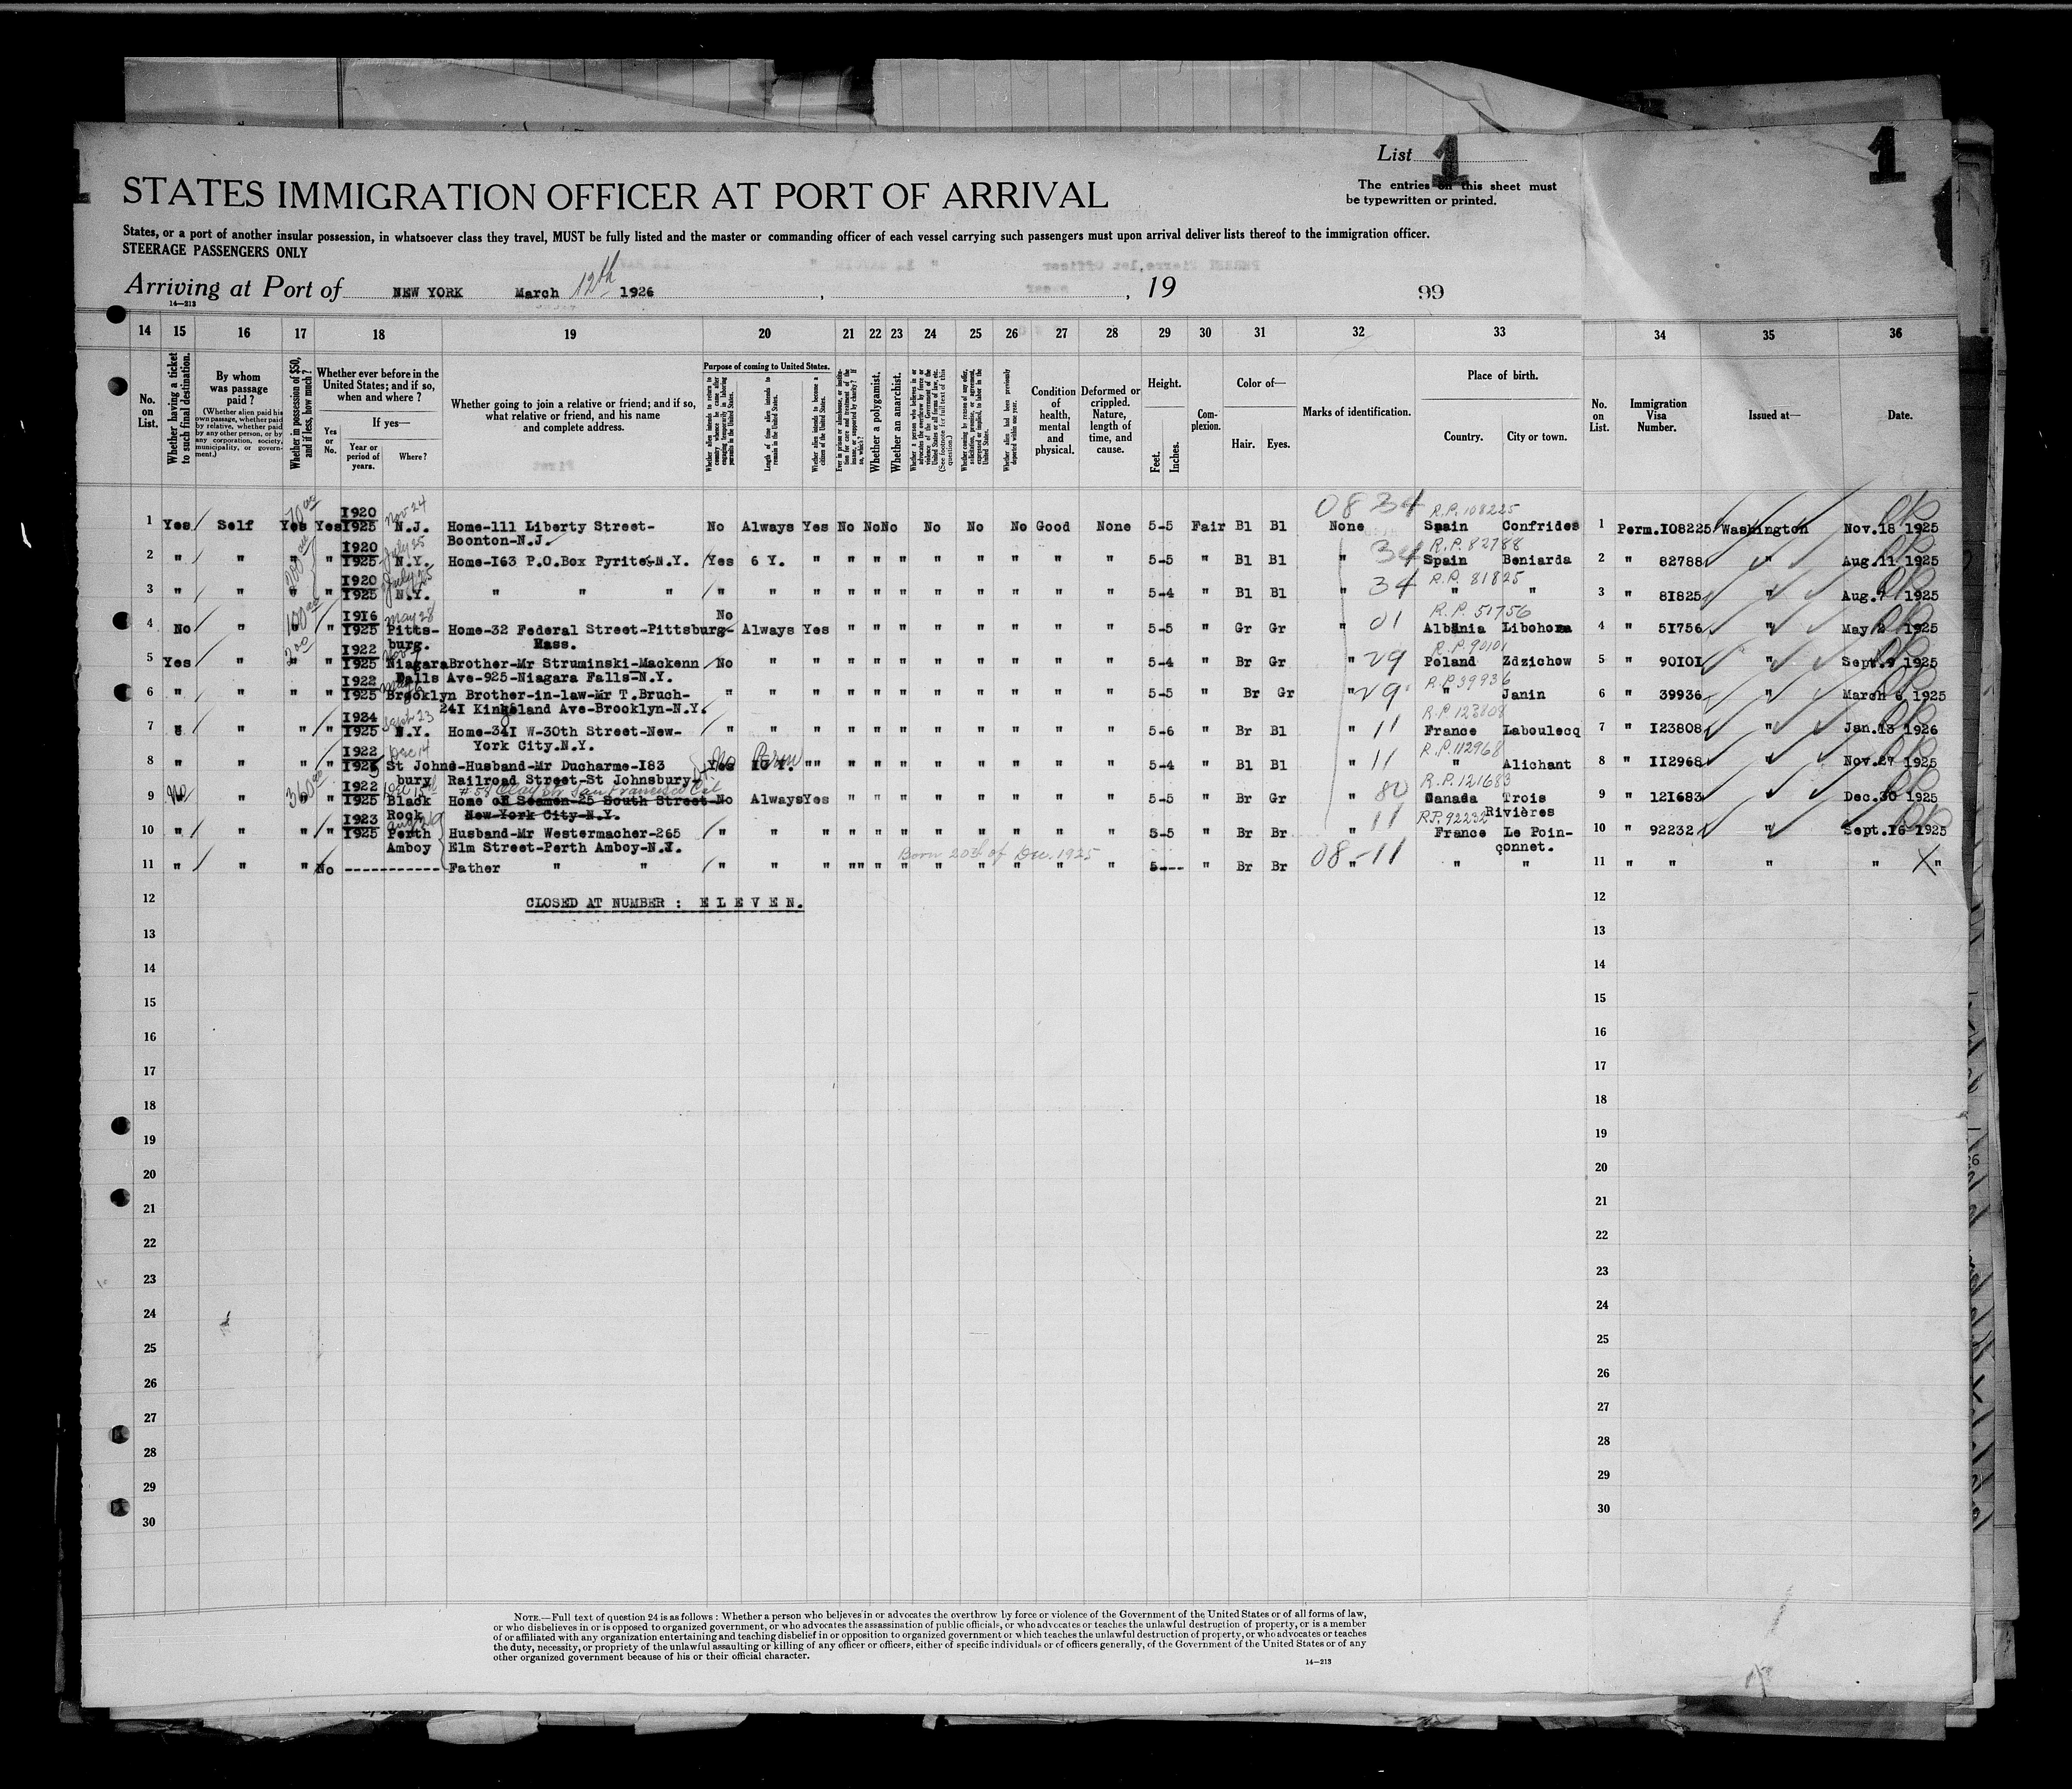 List 1
1
STATES IMMIGRATION OFFICER AT PORT OF ARRIVAL
The entries on this sheet must
be typewritten or printed.
States, or a port of another insular possession, in whatsoever class they travel, MUST be fully listed and the master or commanding officer of each vessel carrying such passengers must upon arrival deliver lists thereof to the immigration officer.
STEERAGE PASSENGERS ONLY
Arriving at Port of NEW YORK March 12th 1926 , , 19 99
14—213
14 15 16 17 18 19 20 21 22 23 24 25 26 27 28 29 30 31 32 33 34 35 36
No. on List.
Whether having a ticket to such final destination.
By whom was passage paid?
(Whether alien paid his own passage, whether paid by relative, whether paid by any other person, or by any corporation, society, municipality, or government.)
Whether in possession of $50, and if less, how much?
Whether ever before in the United States; and if so, when and where?
Yes or No.
If yes—
Year or period of years.
Where?
Whether going to join a relative or friend; and if so, what relative or friend, and his name and complete address.
Purpose of coming to United States.
Whether alien intends to return to country whence he came after engaging temporarily in laboring pursuits in the United States.
Length of time alien intends to remain in the United States.
Whether alien intends to become a citizen of the United States.
Ever in prison or almshouse, or institution for care and treatment of the insane, or supported by charity? If so, which?
Whether a polygamist.
Whether an anarchist.
Whether a person who believes in or advocates the overthrow by force or violence of the Government of the United States or all forms of law, etc. (See footnote for full text of this question.)
Whether coming by reason of any offer, solicitation, promise, or agreement, expressed or implied, to labor in the United States.
Whether alien had been previously deported within one year.
Condition of health, mental and physical.
Deformed or crippled. Nature, length of time, and cause.
Height.
Feet. Inches.
Complexion.
Color of—
Hair. Eyes.
Marks of identification.
Place of birth.
Country. City or town.
No. on List.
Immigration Visa Number.
Issued at—
Date.
70 00 I920 Nov 24 08 34 R.P. 108225 OK
1 Yes Self Yes Yes I925 N.J. Home-111 Liberty Street- No Always Yes No No No No No No Good None 5-5 Fair Bl Bl None Spain Confrides 1 Perm.I08225 Washington Nov.18 1925
Boonton-N.J.
I920 July 25 34 R.P. 82788 OK
2 " " " " I925 N.Y. Home-I63 P.O.Box Pyrites-N.Y. Yes 6 Y. " " " " " " " " " 5-5 " Bl Bl " Spain Beniarda 2 " 82788 " Aug.11 1925
I920 July 25 34 R.P. 81825 OK
3 " " " " I925 N.Y. " " " " " " " " " " " " " " 5-4 " Bl Bl " " " 3 " 81825 " Aug.7 1925
100 00 I916 May 28 No 01 R.P. 51756 OK
4 No " " I925 Pitts- Home-32 Federal Street-Pittsburg- Always Yes " " " " " " " " 5-5 " Gr Gr " Albania Libohova 4 " 51756 " May 2 1925
burg. Mass.
200 I922 29 R.P. 90101 OK
5 Yes " " I925 Niagara Brother-Mr Struminski-Mackenn No " " " " " " " " " " 5-4 " Br Gr " Poland Zdzichow 5 " 90I0I " Sept.9 1925
Falls Ave-925-Niagara Falls-N.Y.
I922 29 R.P. 39936 OK
6 " " " " I925 Brooklyn Brother-in-law-Mr T.Bruch- " " " " " " " " " " " 5-5 " Br Gr " " Janin 6 " 39936 " March 6 1925
24I Kingsland Ave-Brooklyn-N.Y.
I924 Sept 23 11 R.P. 123808 OK
7 " " " " I925 N.Y. Home-34I W-30th Street-New- " " " " " " " " " " " 5-6 " Br Bl " France Laboulecq 7 " I23808 " Jan.13 1926
York City.N.Y.
I922 Dec 14 No Perm 11 R.P. 112968 OK
8 " " " " I925 St Johns-Husband-Mr Ducharme-I83 Yes 10 Y. " " " " " " " " " " 5-4 " Bl Bl " " Alichant 8 " II2968 " Nov.27 1925
bury Railroad Street-St Johnsbury-
360 00 I922 Dec 15 # 54 Clay Str San Francisco Cal 80 R.P. 121683 OK
9 No " " " I925 Black Home of Seamen-25 South Street- No Always Yes " " " " " " " " 5-5 " Br Gr " Canada Trois 9 " 121683 Dec.30 1925
Rock New-York City-N.Y. Rivières
I923 Aug 29 11 R.P. 92232 OK
10 " " " " I925 Perth Husband-Mr Westermacher-265 " " " " " " " " " " " 5-5 " Br Br " France Le Poin- 10 " 92232 " Sept.16 1925
Amboy Elm Street-Perth Amboy-N.J. çonnet.
Born 20th of Dec. 1925 08-11
11 " " " No ------------ Father " " " " " " " " " " " " " " 5---- " Br Br " " " 11 " " " " X "
12 CLOSED AT NUMBER : E L E V E N. 12
13 13
14 14
15 15
16 16
17 17
18 18
19 19
20 20
21 21
22 22
23 23
24 24
25 25
26 26
27 27
28 28
29 29
30 30
NOTE.—Full text of question 24 is as follows: Whether a person who believes in or advocates the overthrow by force or violence of the Government of the United States or of all forms of law,
or who disbelieves in or is opposed to organized government, or who advocates the assassination of public officials, or who advocates or teaches the unlawful destruction of property, or is a member
of or affiliated with any organization entertaining and teaching disbelief in or opposition to organized government or which teaches the unlawful destruction of property, or who advocates or teaches
the duty, necessity, or propriety of the unlawful assaulting or killing of any officer or officers, either of specific individuals or of officers generally, of the Government of the United States or of any
other organized government because of his or their official character.
14—213